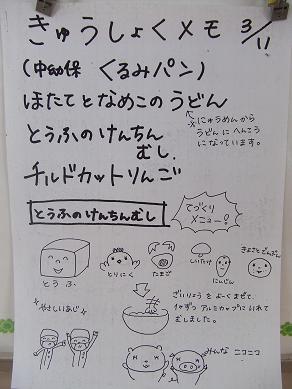 きゅうしょくメモ 3/11
(中幼保 くるみパン)
ほたてとなめこのうどん
※にゅうめんから
うどんにへんこう
になっています。
とうふのけんちん
むし
チルドカットりんご
とうふのけんちんむし
てづくり
メニュー!
とうふ
とりにく
たまご
しいたけ
にんじん
やさしいあじ
ざいりょうをよくまぜて、
1つずつアルミカップにいれて
むしました。
みんなニコニコ